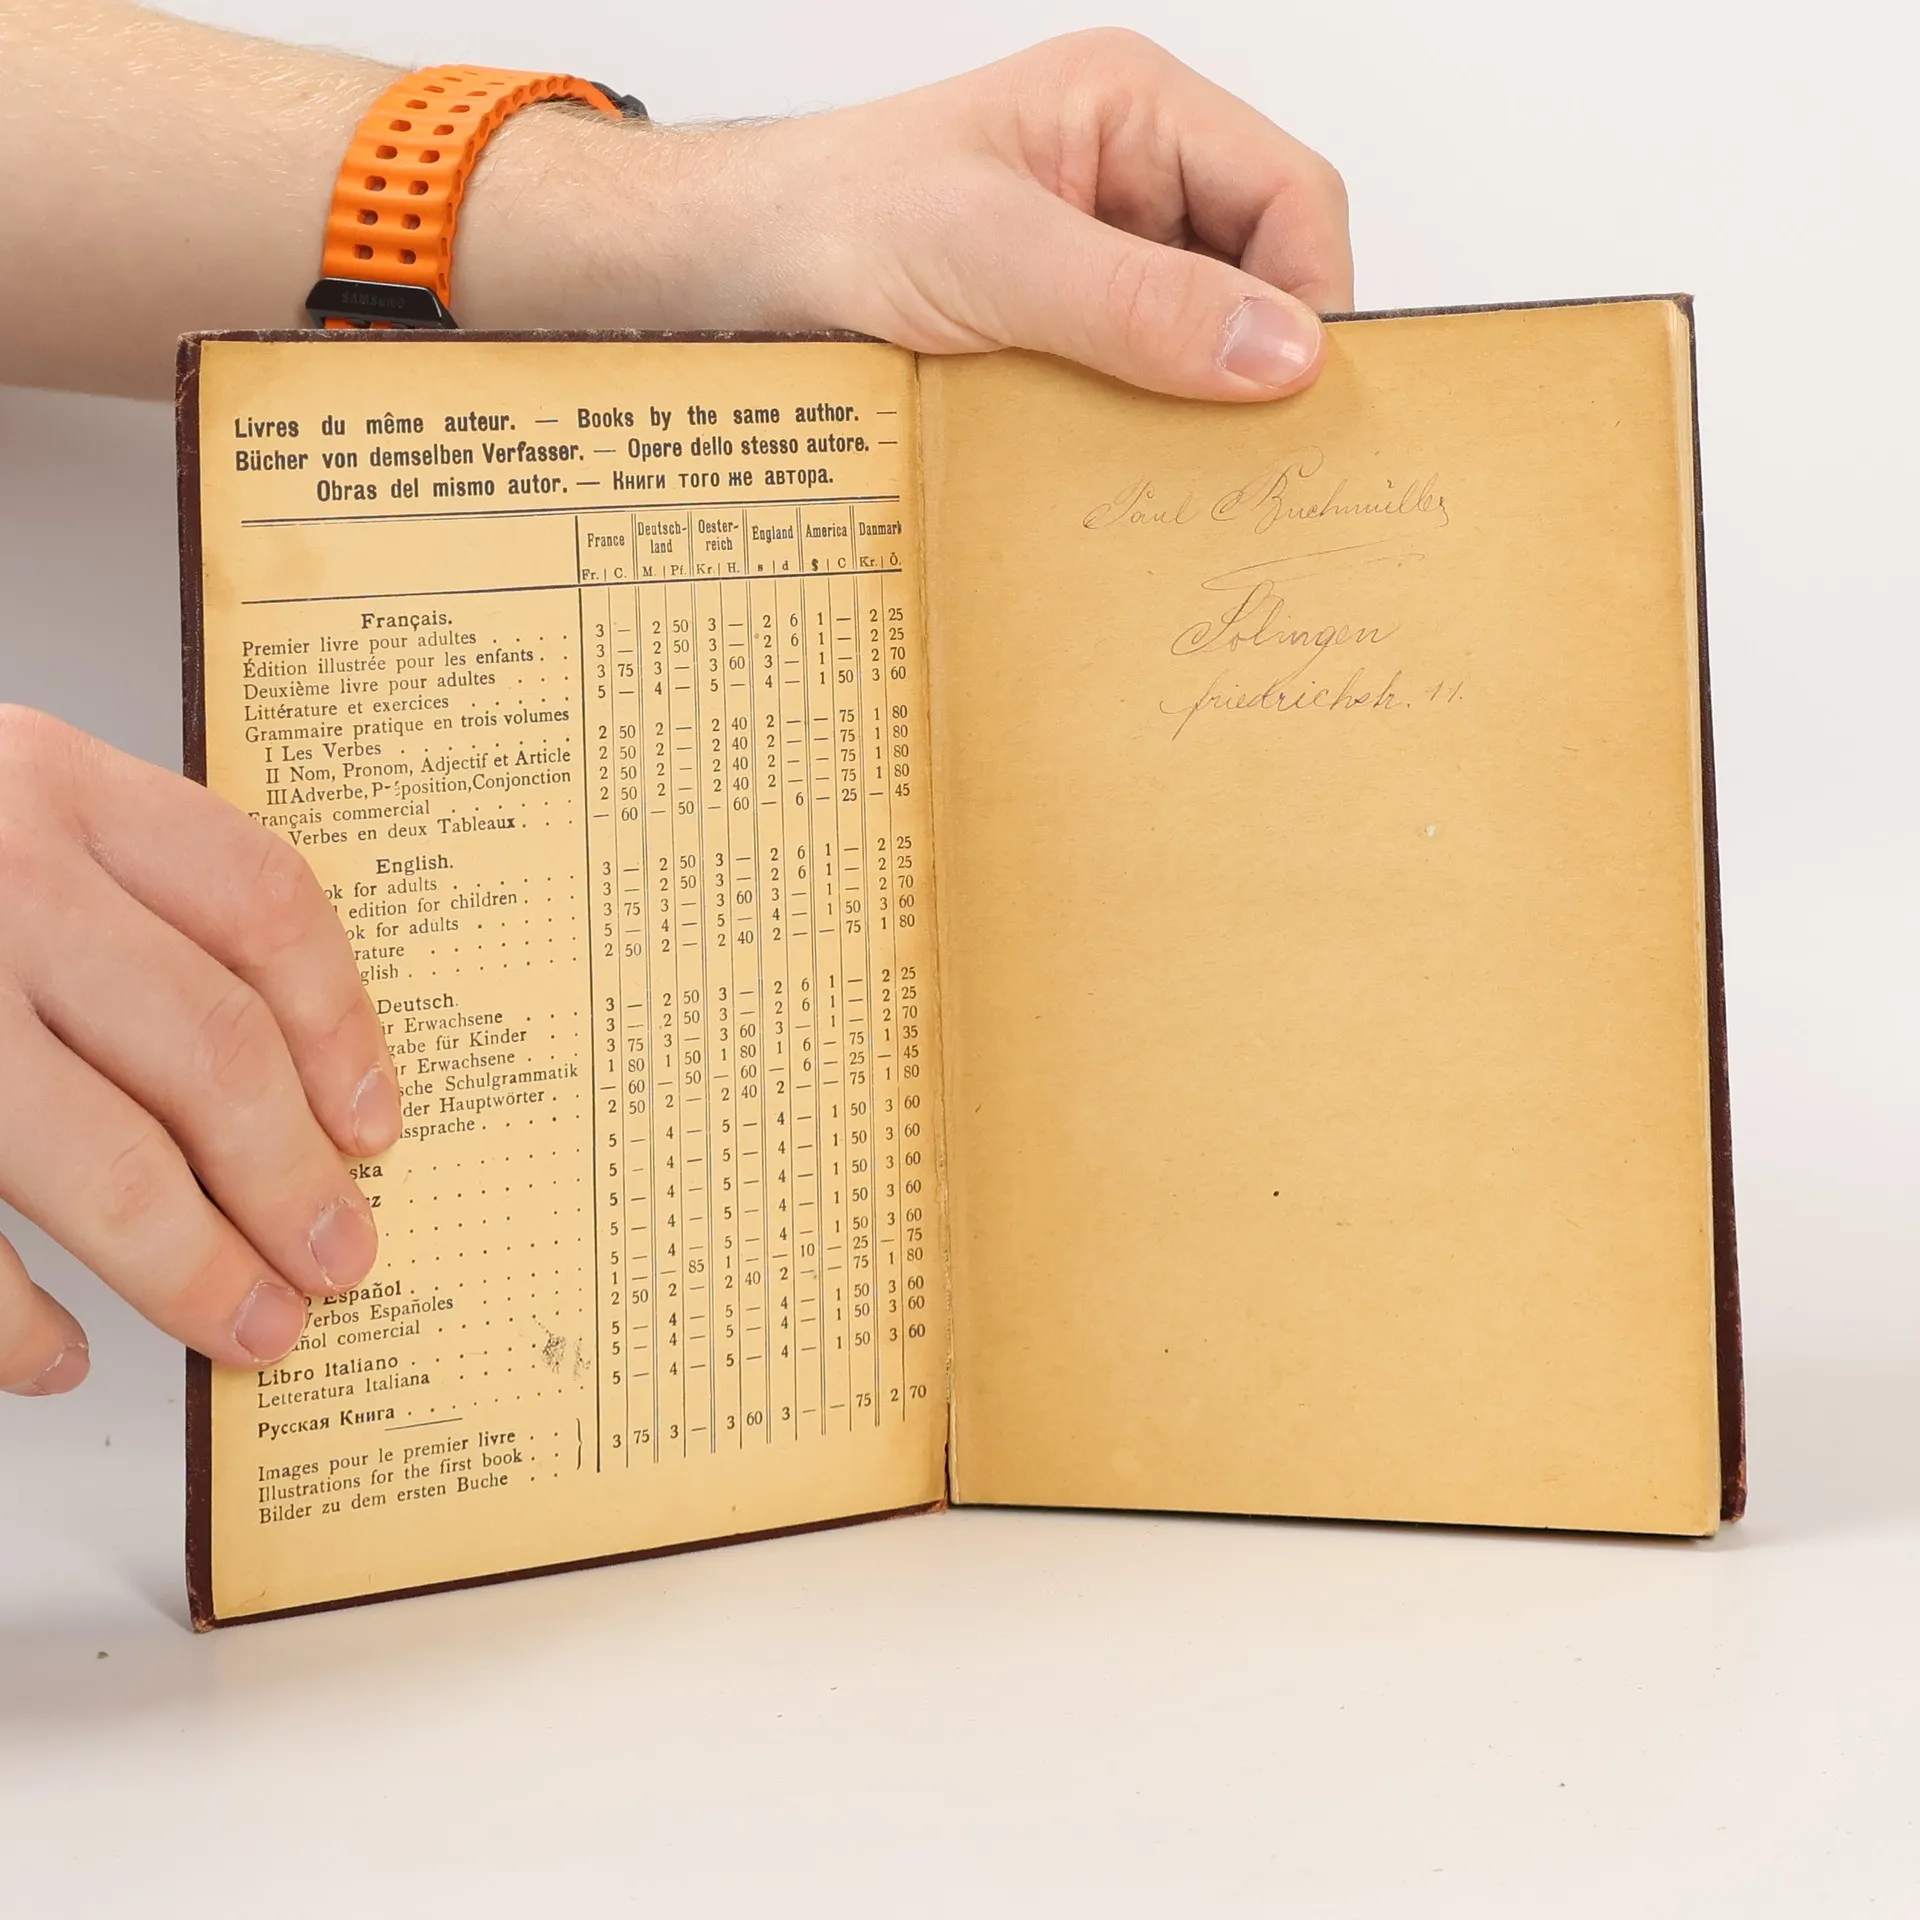 SAMSUNG
Livres du même auteur. — Books by the same author. —
Bücher von demselben Verfasser. — Opere dello stesso autore. —
Obras del mismo autor. — Книги того же автора.
France Deutsch-land Oester-reich England America Danmark
Fr. | C. M. | Pf. Kr. | H. s | d $ | C Kr. | Ö.
Français.
Premier livre pour adultes . . . . 3 — 2 50 3 — 2 6 1 — 2 25
Édition illustrée pour les enfants . . 3 — 2 50 3 — 2 6 1 — 2 25
Deuxième livre pour adultes . . . 3 75 3 — 3 60 3 — 1 — 2 70
Littérature et exercices . . . . . 5 — 4 — 5 — 4 — 1 50 3 60
Grammaire pratique en trois volumes
I Les Verbes . . . . . . . . 2 50 2 — 2 40 2 — — 75 1 80
II Nom, Pronom, Adjectif et Article 2 50 2 — 2 40 2 — — 75 1 80
III Adverbe, Préposition, Conjonction 2 50 2 — 2 40 2 — — 75 1 80
Français commercial . . . . . . 2 50 2 — 2 40 2 — — 75 1 80
Verbes en deux Tableaux . . . — 60 — 50 — 60 — 6 — 25 — 45
English.
ok for adults . . . . . . 3 — 2 50 3 — 2 6 1 — 2 25
edition for children . . . 3 — 2 50 3 — 2 6 1 — 2 25
ok for adults . . . . . 3 75 3 — 3 60 3 — 1 — 2 70
rature . . . . . . . 5 — 4 — 5 — 4 — 1 50 3 60
glish . . . . . . . . 2 50 2 — 2 40 2 — — 75 1 80
Deutsch.
ür Erwachsene . . . 3 — 2 50 3 — 2 6 1 — 2 25
gabe für Kinder . . 3 — 2 50 3 — 2 6 1 — 2 25
ür Erwachsene . . . 3 75 3 — 3 60 3 — 1 — 2 70
sche Schulgrammatik 1 80 1 50 1 80 1 6 — 75 1 35
der Hauptwörter . . — 60 — 50 — 60 — 6 — 25 — 45
ssprache . . . . . 2 50 2 — 2 40 2 — — 75 1 80
ska . . . . . . . 5 — 4 — 5 — 4 — 1 50 3 60
cz . . . . . . . 5 — 4 — 5 — 4 — 1 50 3 60
5 — 4 — 5 — 4 — 1 50 3 60
5 — 4 — 5 — 4 — 1 50 3 60
o Español . . . . . . . 5 — 4 — 5 — 4 — 1 50 3 60
Verbos Españoles . . . . . 1 — — 85 1 — — 10 — 25 — 75
añol comercial . . . . . . 2 50 2 — 2 40 2 — — 75 1 80
Libro Italiano . . . . . . 5 — 4 — 5 — 4 — 1 50 3 60
Letteratura Italiana . . . . . 5 — 4 — 5 — 4 — 1 50 3 60
Русская Книга . . . . . . . 5 — 4 — 5 — 4 — 1 50 3 60
Images pour le premier livre . .
Illustrations for the first book . . } 3 75 3 — 3 60 3 — — 75 2 70
Bilder zu dem ersten Buche . .
Paul Buchmüller
Solingen
friedrichstr. 11.